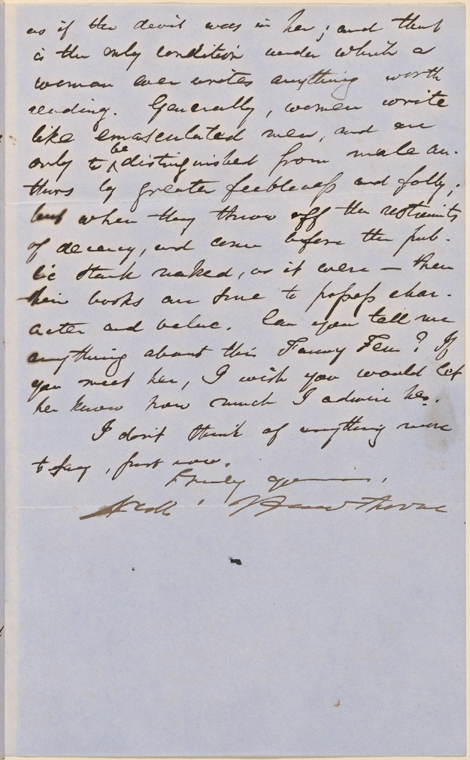 as if the devil was in her; and that
is the only condition under which a
woman ever writes anything worth
reading. Generally, women write
like emasculated men, and are
only to be distinguished from male au-
thors by greater feebleness and folly;
but when they throw off the restraints
of decency, and come before the pub-
lic stark naked, as it were — then
their books are sure to possess char-
acter and value. Can you tell me
anything about this Fanny Fern? If
you meet her, I wish you would let
her know how much I admire her.
I don't think of anything more
to say, just now.
Truly yours,
Nath' Hawthorne